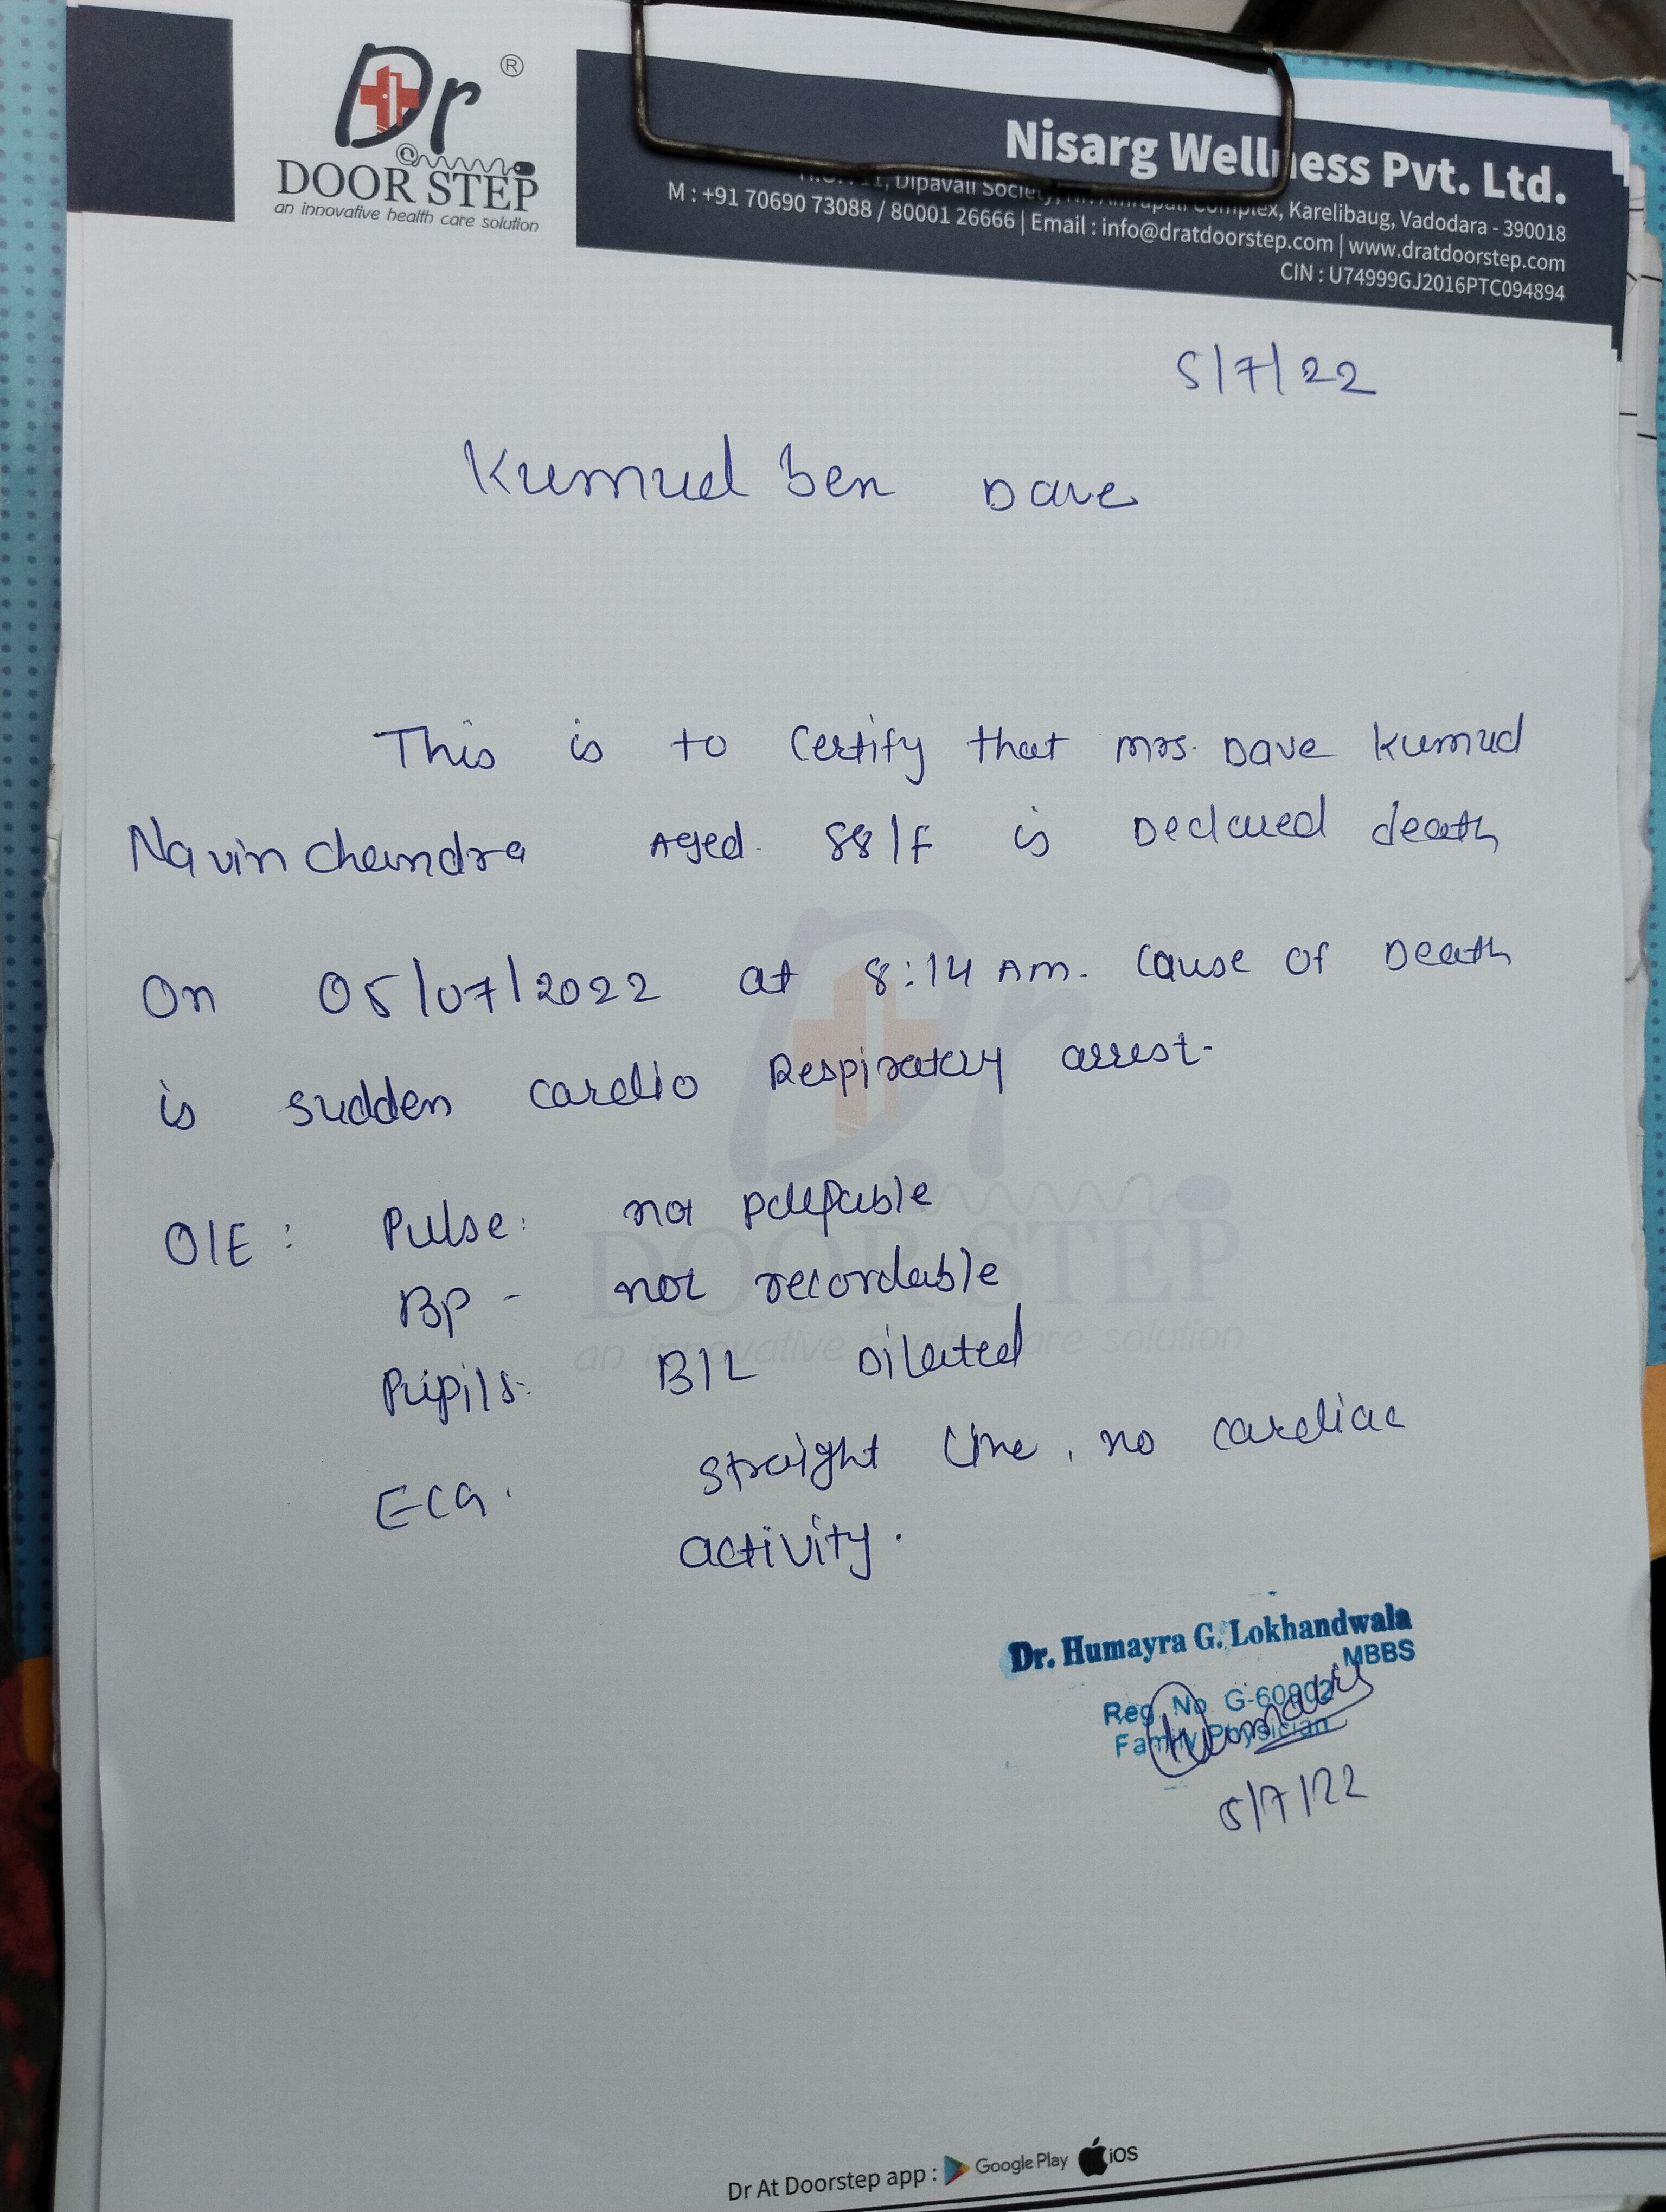 Dr ®
@
DOOR STEP
an innovative health care solution
Nisarg Wellness Pvt. Ltd.
Dipavali Society, Complex, Karelibaug, Vadodara - 390018
M : +91 70690 73088 / 80001 26666 | Email : info@dratdoorstep.com | www.dratdoorstep.com
CIN : U74999GJ2016PTC094894
5/7/22
Kumud ben Dave
This is to Certify that Mrs. Dave Kumud
Navinchandra Aged. 88/F is Declared death
On 05/07/2022 at 8:14 AM. Cause of Death
is sudden cardio Respiratory arrest.
O/E : Pulse: not palpable
BP - not recordable
Pupils: B/L Dilated
ECG. straight line, no cardiac
activity.
Dr. Humayra G. Lokhandwala
MBBS
Reg. No. G-60902
Family Physician
5/7/22
Dr
DOOR STEP
an innovative health care solution
Dr At Doorstep app : Google Play iOS